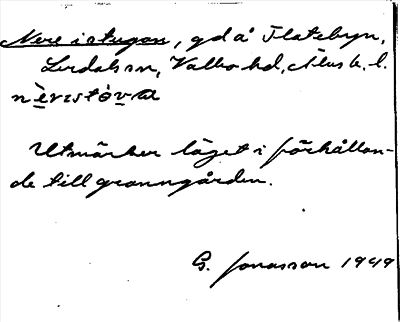 Nere i stugan, gd å Flatebyn,
Lerdals sn, Valbo hd, Älvsb. l.
nèvistòva
Utmärker läget i förhållan-
de till granngården.
G. Jonasson 1949